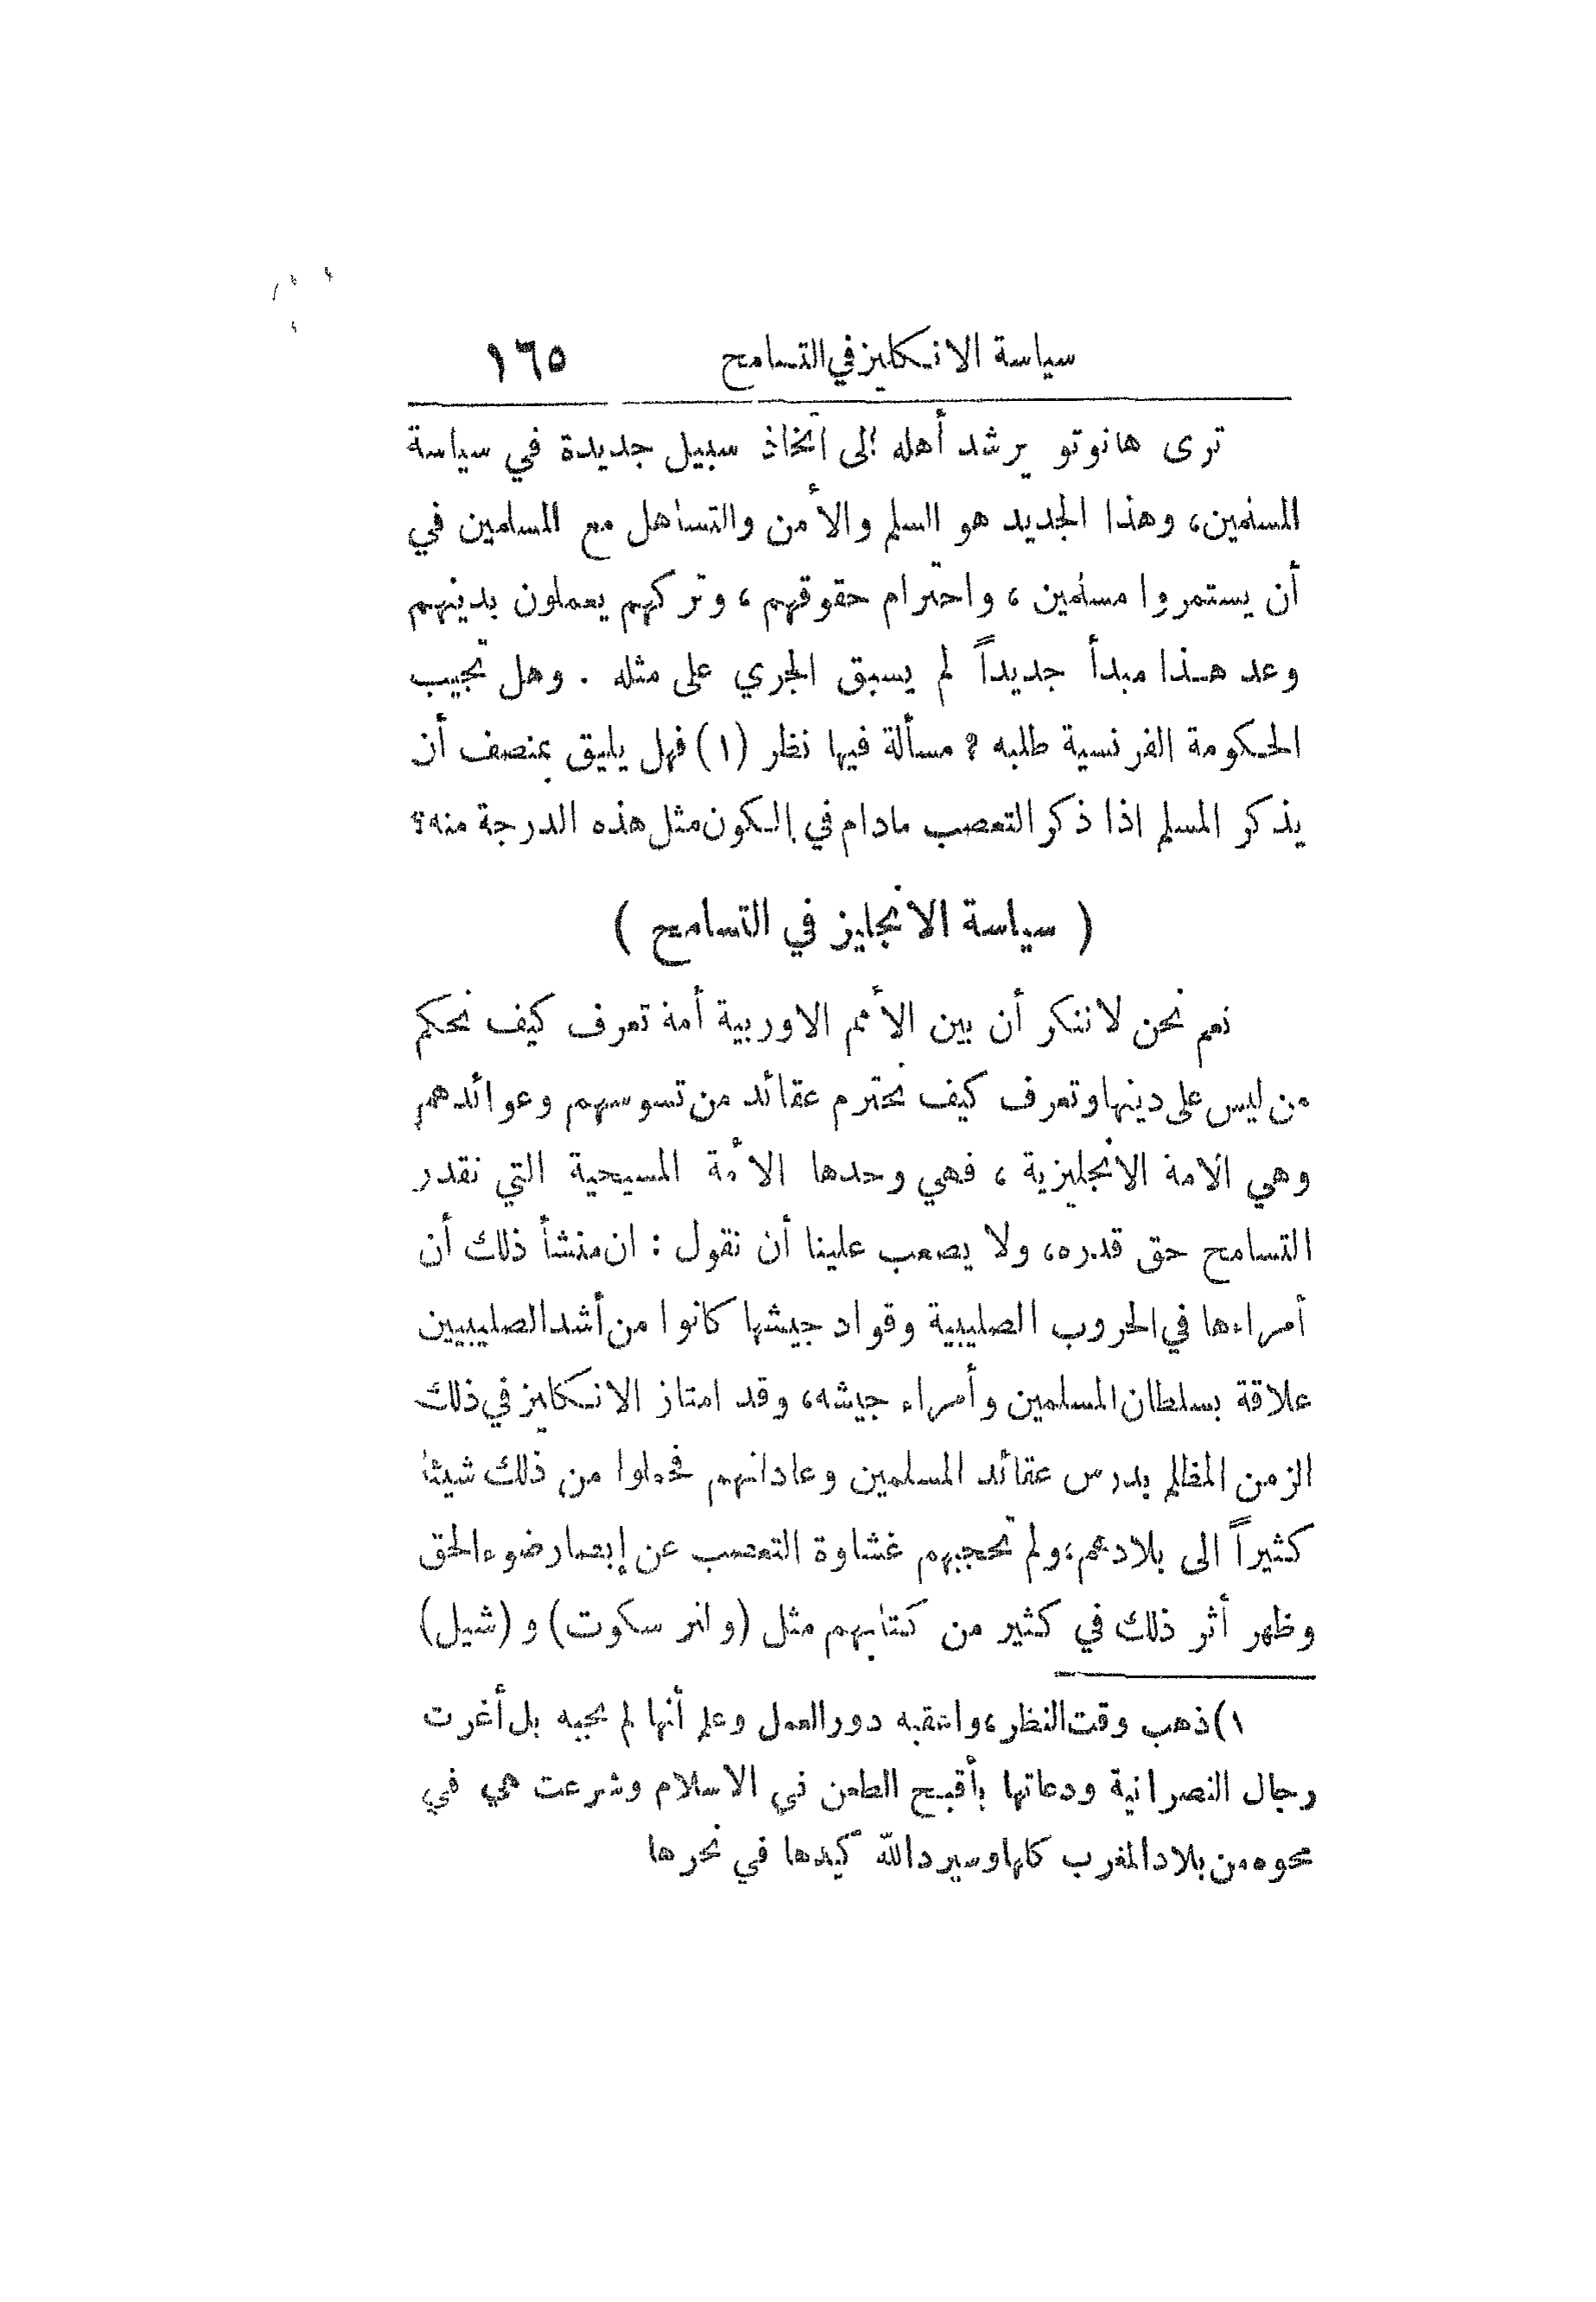 سياسة الانكليز في التسامح ١٦٥
ترى هانوتو يرشد أهله إلى اتخاذ سبيل جديدة في سياسة
المسلمين، وهذا الجديد هو السلم والأمن والتساهل مع المسلمين في
أن يستمروا مسلمين، واحترام حقوقهم، وتركهم يعملون بدينهم
وعد هذا مبدأ جديداً لم يسبق الجري على مثله . وهل تجيب
الحكومة الفرنسية طلبه ؟ مسألة فيها نظر (١) فهل يليق بمنصف أن
يذكر المسلم اذا ذكر التعصب مادام في الكون مثل هذه الدرجة منه؟
( سياسة الانجليز في التسامح )
نعم نحن لا ننكر أن بين الأمم الاوربية أمة تعرف كيف تحكم
من ليس على دينها وتعرف كيف تحترم عقائد من تسوسهم وعوائدهم
وهي الامة الانجليزية ، فهي وحدها الأمة المسيحية التي تقدر
التسامح حق قدره، ولا يصعب علينا أن نقول : ان منشأ ذلك أن
أمراءها في الحروب الصليبية وقواد جيشها كانوا من أشد الصليبيين
علاقة بسلطان المسلمين وأمراء جيشه، وقد امتاز الانكليز في ذلك
الزمن المظلم بدرس عقائد المسلمين وعاداتهم فحملوا من ذلك شيئا
كثيراً الى بلادهم، ولم تحجبهم غشاوة التعصب عن إبصار ضوء الحق
وظهر أثر ذلك في كثير من كتابهم مثل (والتر سكوت) و (شيل)
١) ذهب وقت النظر، وانتقبه دور العمل وعلم أنها لم تجبه بل أغرت
رجال النصرانية ودعاتها بأقبح الطعن في الاسلام وشرعت هي في
محوه من بلاد المغرب كلها وسيرد الله كيدها في نحرها